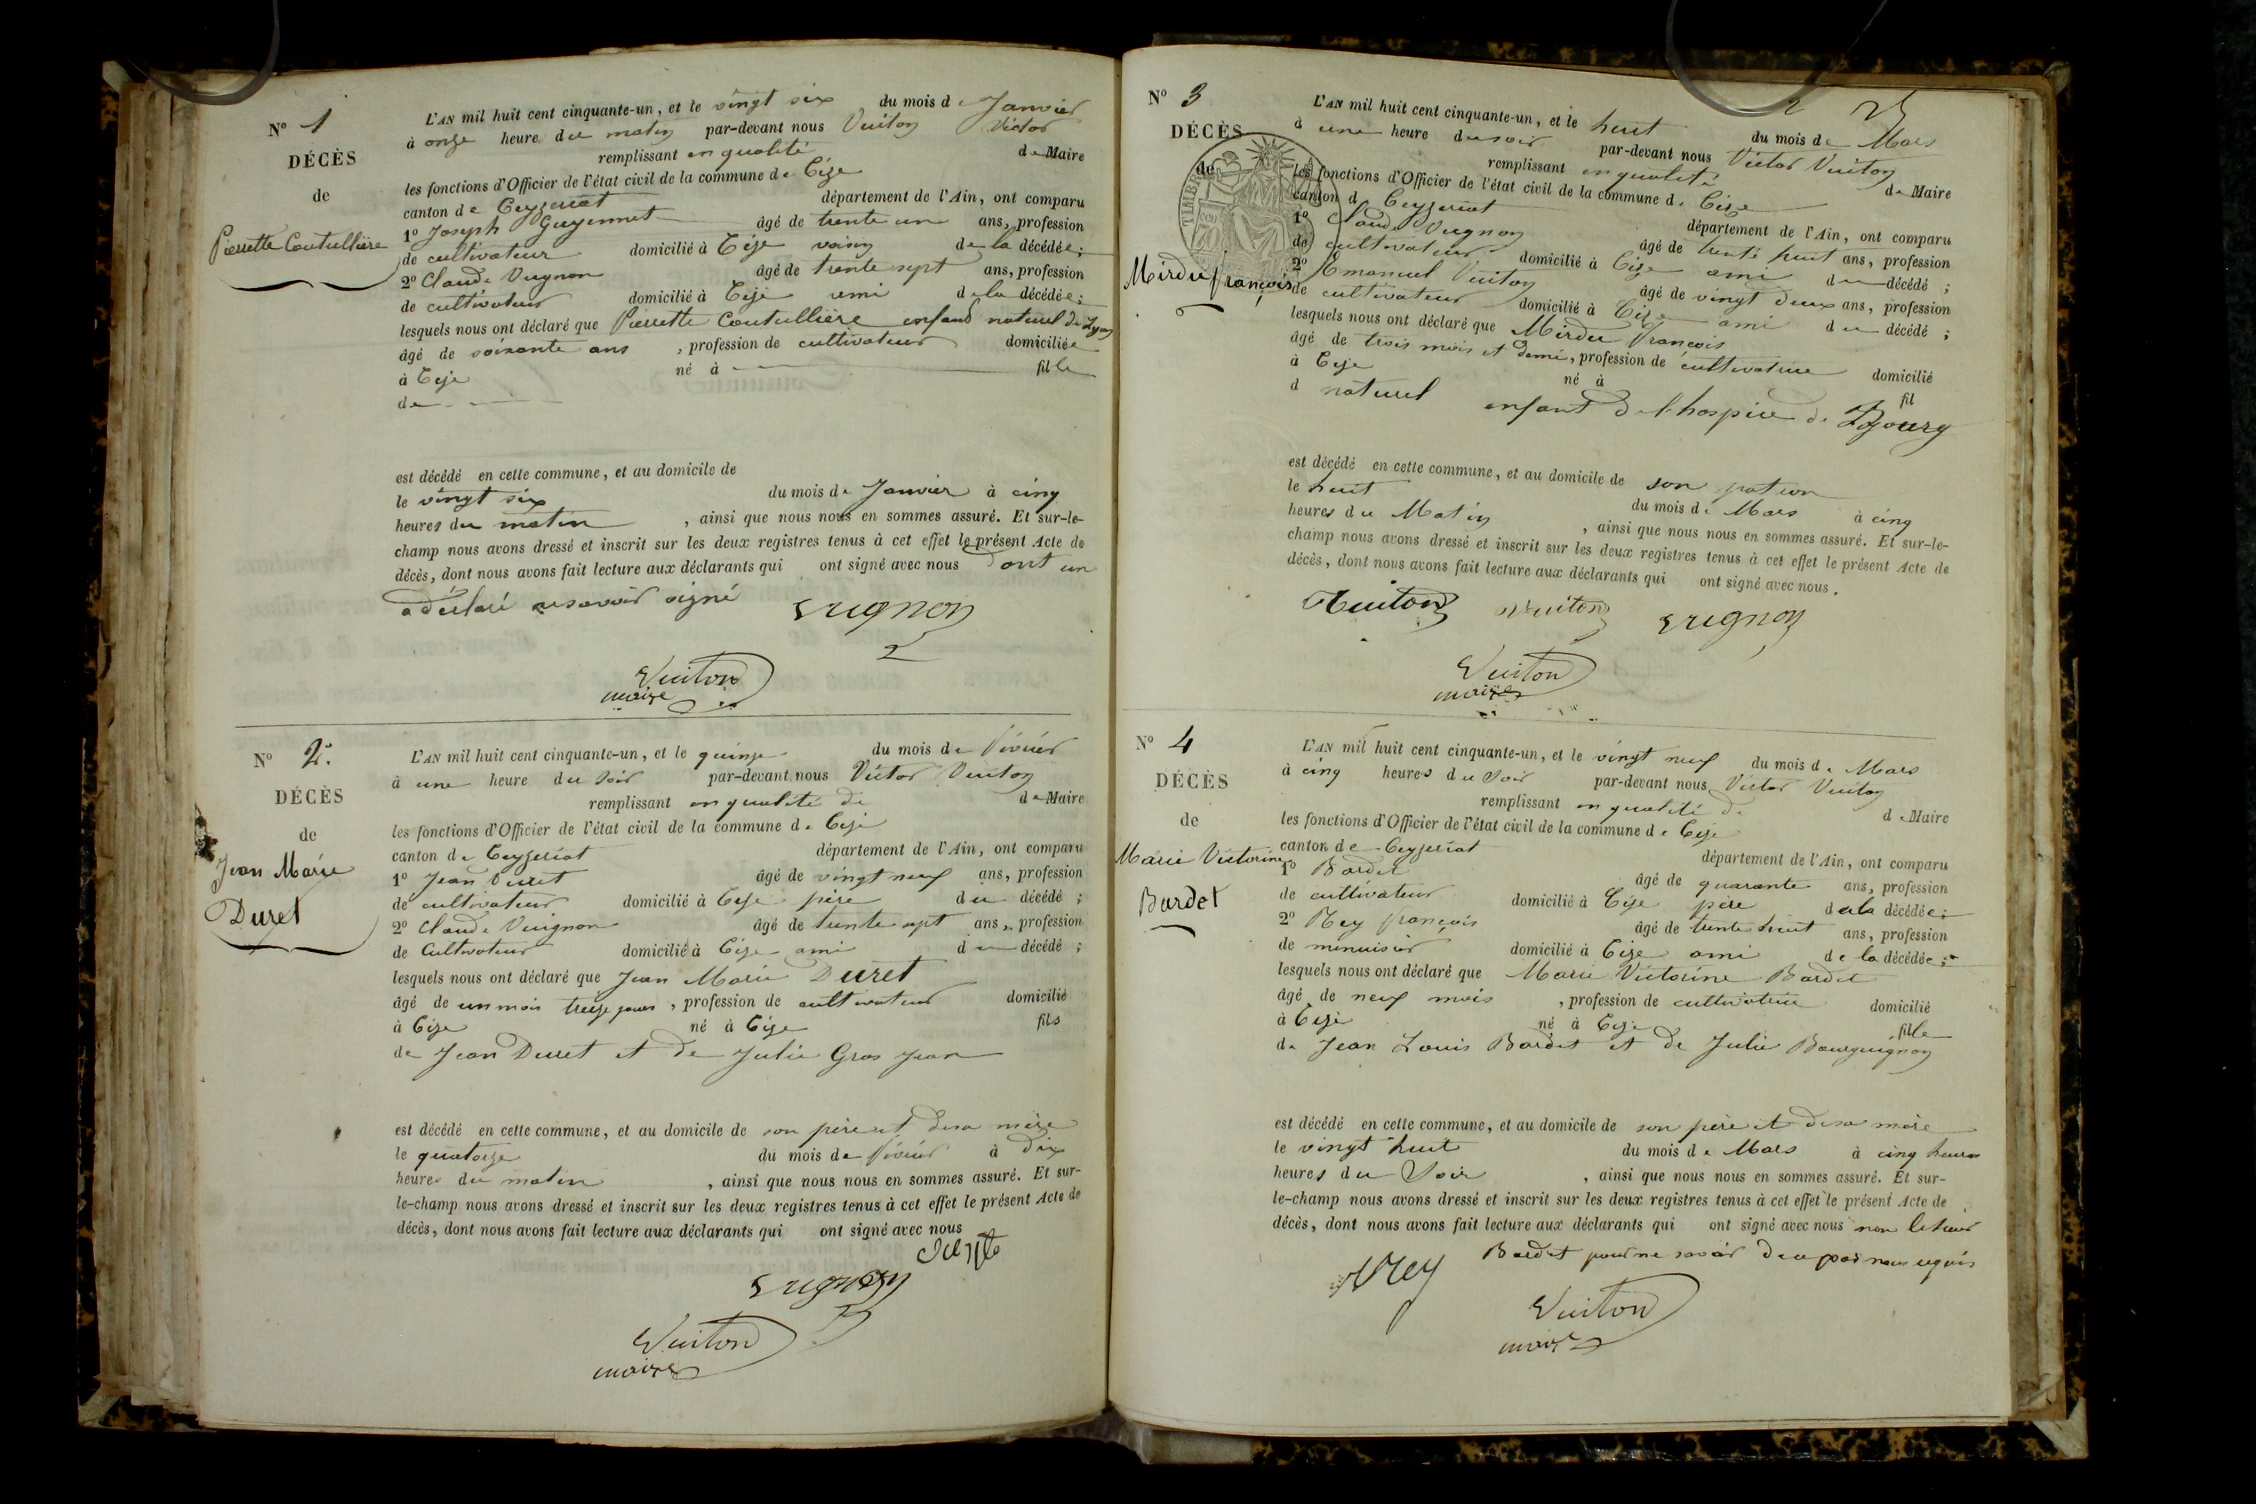 N° 1
DÉCÈS
de
Pierrette Coutullière
L'AN mil huit cent cinquante-un, et le vingt six du mois de Janvier
à onze heure du matin par-devant nous Vuiton Victor
remplissant en qualité de Maire
les fonctions d'Officier de l'état civil de la commune de Cize
canton de Ceyzeriat département de l'Ain, ont comparu
1° Joseph Guyennet âgé de trente un ans, profession
de cultivateur domicilié à Cize voisin de la décédée;
2° Claude Vugnon âgé de trente sept ans, profession
de cultivateur domicilié à Cize ami de la décédée;
lesquels nous ont déclaré que Pierrette Coutullière enfand naturel de Lyon
âgé de soixante ans, profession de cultivateur domiciliée
à Cize né à fille
de
est décédé en cette commune, et au domicile de
le vingt six du mois de Janvier à cinq
heures du matin, ainsi que nous nous en sommes assuré. Et sur-le-
champ nous avons dressé et inscrit sur les deux registres tenus à cet effet le présent Acte de
décès, dont nous avons fait lecture aux déclarants qui ont signé avec nous dont un
a déclaré ne savoir signé
Vugnon
Vuiton
maire
N° 2.
DÉCÈS
de
Jean Marie
Duret
L'AN mil huit cent cinquante-un, et le quinze du mois de Févier
à une heure du soir par-devant nous Victor Vuiton
remplissant en qualité de de Maire
les fonctions d'Officier de l'état civil de la commune de Cize
canton de Ceyzeriat département de l'Ain, ont comparu
1° Jean Duret âgé de vingt neuf ans, profession
de cultivateur domicilié à Cize père du décédé;
2° Claude Vuignon âgé de trente sept ans, profession
de Cultivateur domicilié à Cize ami du décédé;
lesquels nous ont déclaré que Jean Marie Duret
âgé de un mois treize jours, profession de cultivateur domicilié
à Cize né à Cize fils
de Jean Duret et de Julie Gros Jean
est décédé en cette commune, et au domicile de son père et de sa mère
le quatorze du mois de Févier à dix
heures du matin, ainsi que nous nous en sommes assuré. Et sur-
le-champ nous avons dressé et inscrit sur les deux registres tenus à cet effet le présent Acte de
décès, dont nous avons fait lecture aux déclarants qui ont signé avec nous
Vugnon
Vuiton
maire
2 25
N° 3
DÉCÈS
de
TIMBRE
Mirdu françois
L'AN mil huit cent cinquante-un, et le huit du mois de Mars
à une heure du soir par-devant nous Victor Vuiton
remplissant en qualité de Maire
les fonctions d'Officier de l'état civil de la commune de Cize
canton d Ceyzeriat département de l'Ain, ont comparu
1° Claude Vugnon âgé de trente huit ans, profession
de cultivateur domicilié à Cize ami du décédé;
2° Emanuel Vuiton âgé de vingt deux ans, profession
de cultivateur domicilié à Cize ami du décédé;
lesquels nous ont déclaré que Mirdu françois
âgé de trois mois et demi, profession de cultivatrice domicilié
à Cize né à fil
d naturel enfant de l'hospice de
est décédé en cette commune, et au domicile de son patron
le huit du mois de Mars à cinq
heures du Matin, ainsi que nous nous en sommes assuré. Et sur-le-
champ nous avons dressé et inscrit sur les deux registres tenus à cet effet le présent Acte de
décès, dont nous avons fait lecture aux déclarants qui ont signé avec nous.
Vuiton Vuiton Vugnon
Vuiton
maire
N° 4
DÉCÈS
de
Marie Victorine
Bardet
L'AN mil huit cent cinquante-un, et le vingt neuf du mois de Mars
à cinq heures du Soir par-devant nous Victor Vuiton
remplissant en qualité de de Maire
les fonctions d'Officier de l'état civil de la commune de Cize
canton de Ceyzeriat département de l'Ain, ont comparu
1° Bardet âgé de quarante ans, profession
de cultivateur domicilié à Cize père de la décédée;
2° Rey françois âgé de trente huit ans, profession
de menuisier domicilié à Cize ami de la décédée;
lesquels nous ont déclaré que Marie Victorine Bardet
âgé de neuf mois, profession de cultivatrice domicilié
à Cize né à Cize fille
de Jean Louis Bardet et de Julie Bourguignon
est décédé en cette commune, et au domicile de son père et de sa mère
le vingt huit du mois de Mars à cinq heures
heures du Soir, ainsi que nous nous en sommes assuré. Et sur-
le-champ nous avons dressé et inscrit sur les deux registres tenus à cet effet le présent Acte de
décès, dont nous avons fait lecture aux déclarants qui ont signé avec nous non le sieur
Bardet pour ne savoir de ce par nous requis
Rey
Vuiton
maire